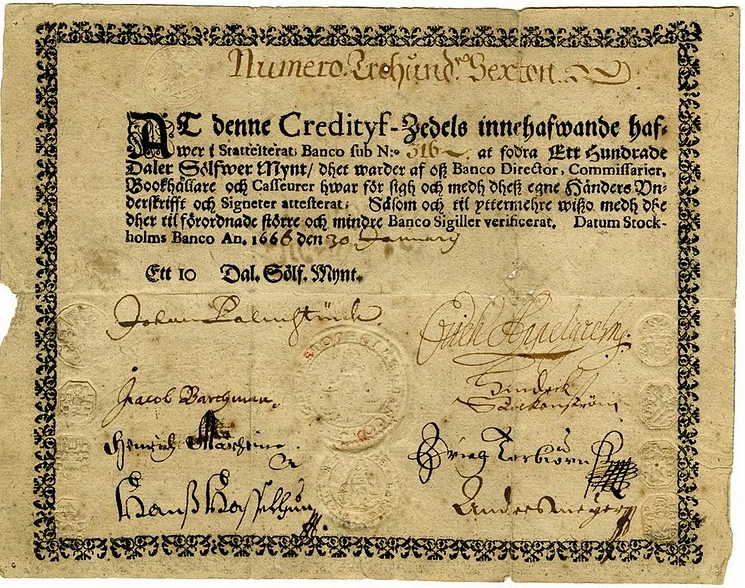 Numero. Trehund. Sexton.
AT denne Credityf-Zedels innehafwande haf-
wer i Statteiterat; Banco sub N:o 316 at fodra Ett Hundrade
Daler Sölfwer Mynt/ dhet warder af oß Banco Director, Commissarier,
Bookhållare och Casseurer hwar för sigh och medh dheß egne Händers Vn-
derskrifft och Signeter attesterat; Såsom och til yttermehre wißo medh dhe
dher til förordnade större och mindre Banco Sigiller verificerat. Datum Stock-
holms Banco An. 1666 den 30 January
Ett 10 Dal. Sölf. Mynt.
Johan Palmstruck
Jacob Barchman
Hindrich
Hendrich
Hanß
Anders Meyer